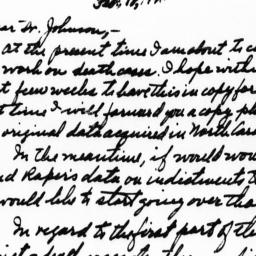 Feb. 10, 19
ear Dr. Johnson,-
At the present time I am about to c
work on death cases. I hope with
t few weeks to have this in copy for
t time I will forward you a copy, pl
original data acquired in North Car
In the meantime, if would wou
nd Raper's data on indictments t
would like to start going over tha
In regard to the first part of the